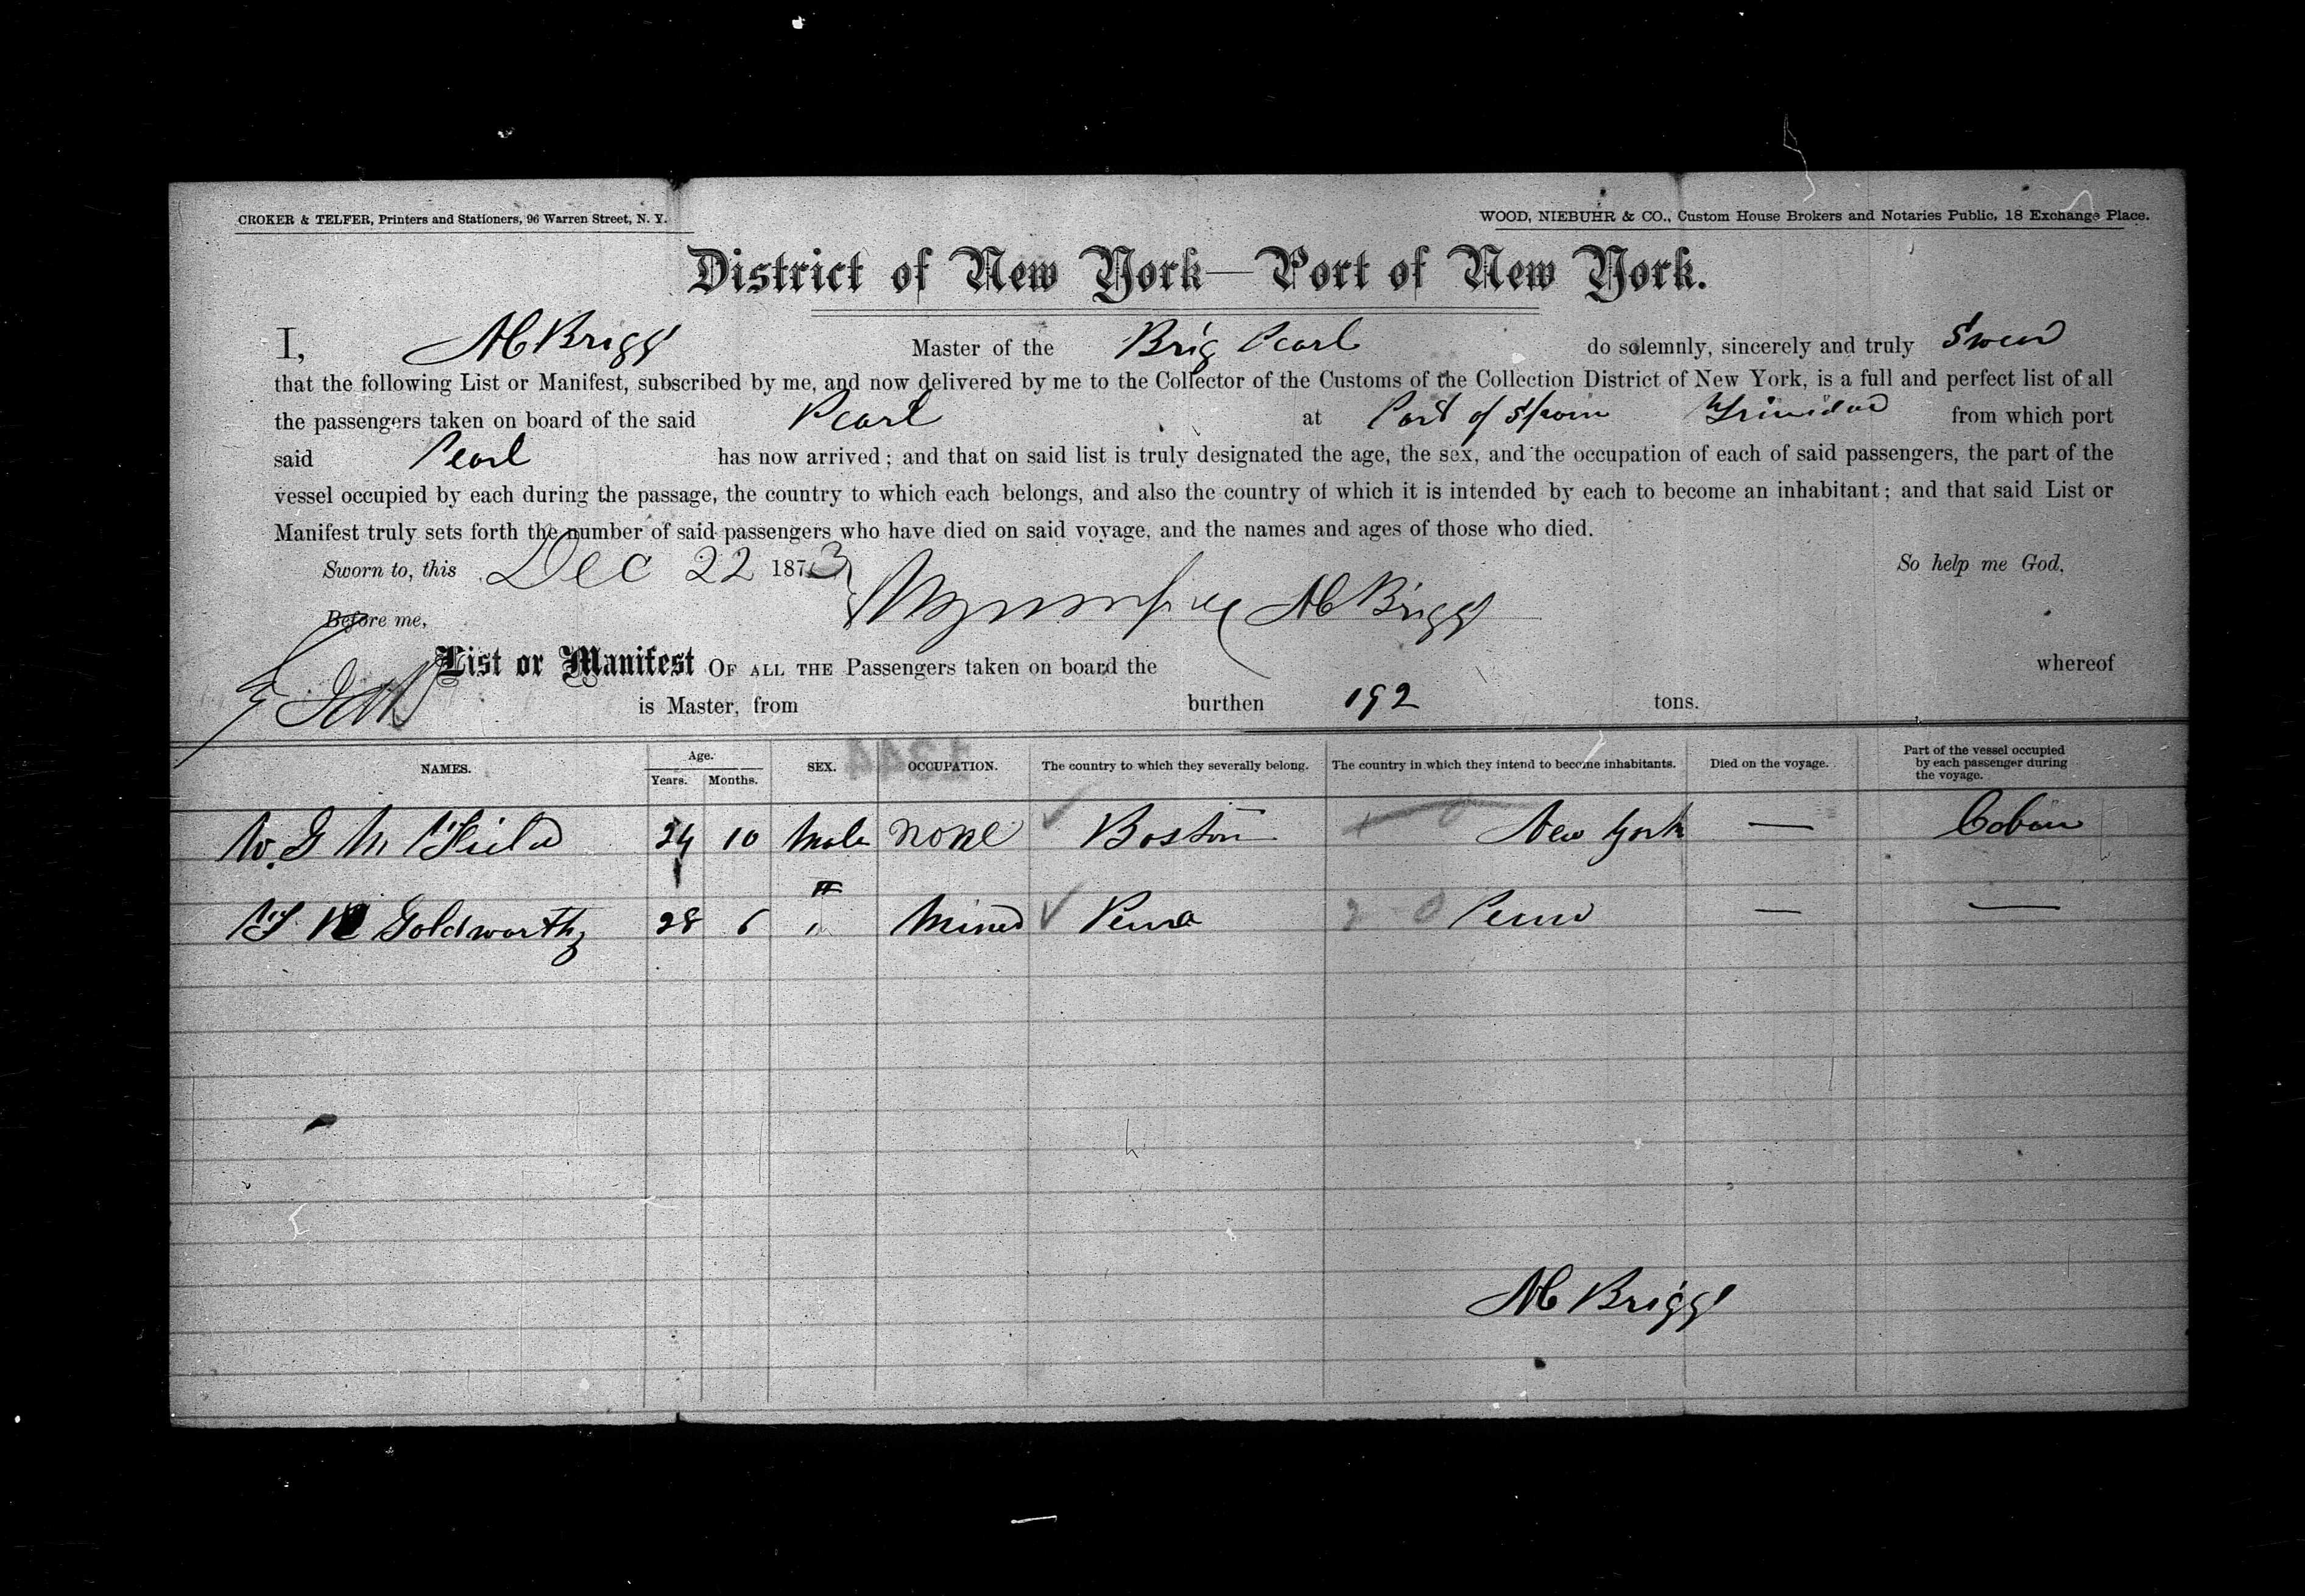 CROKER & TELFER, Printers and Stationers, 96 Warren Street, N. Y.
WOOD, NIEBUHR & CO., Custom House Brokers and Notaries Public, 18 Exchange Place.
District of New York—Port of New York.
I, Briggs Master of the Brig Pearl do solemnly, sincerely and truly Swear
that the following List or Manifest, subscribed by me, and now delivered by me to the Collector of the Customs of the Collection District of New York, is a full and perfect list of all
the passengers taken on board of the said Pearl at Port of Spain Trinidad from which port
said Pearl has now arrived; and that on said list is truly designated the age, the sex, and the occupation of each of said passengers, the part of the
vessel occupied by each during the passage, the country to which each belongs, and also the country of which it is intended by each to become an inhabitant; and that said List or
Manifest truly sets forth the number of said passengers who have died on said voyage, and the names and ages of those who died.
Sworn to, this Dec 22 1873 So help me God,
Before me, Briggs
List or Manifest OF ALL THE Passengers taken on board the whereof
is Master, from burthen 192 tons.
1344
NAMES. Age. Years. Months. SEX. OCCUPATION. The country to which they severally belong. The country in which they intend to become inhabitants. Died on the voyage. Part of the vessel occupied by each passenger during the voyage.
W. G M Field 24 10 Male none Boston New York — Cabin
Goldworthy 28 6 " Miner Penna Penna — —
Briggs